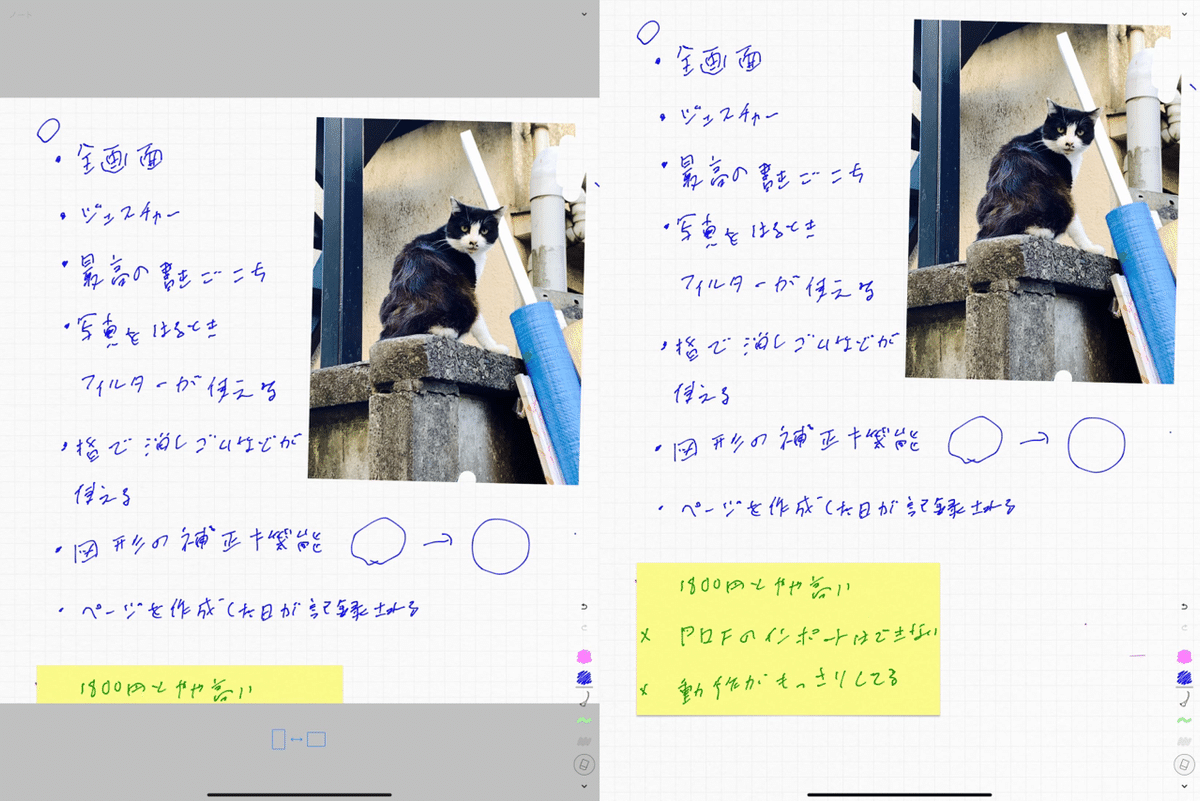 ・全画面
・ジェスチャー
・最高の書きごこち
・写真をはるとき
フィルターが使える
・指で消しゴムなどが
使える
・図形の補正機能 →
・ページを作成した日が記録される
1800円とやや高い
・全画面
・ジェスチャー
・最高の書きごこち
・写真をはるとき
フィルターが使える
・指で消しゴムなどが
使える
・図形の補正機能 →
・ページを作成した日が記録される
1800円とやや高い
× PDFのインポートはできない
× 動作がもっさりしてる